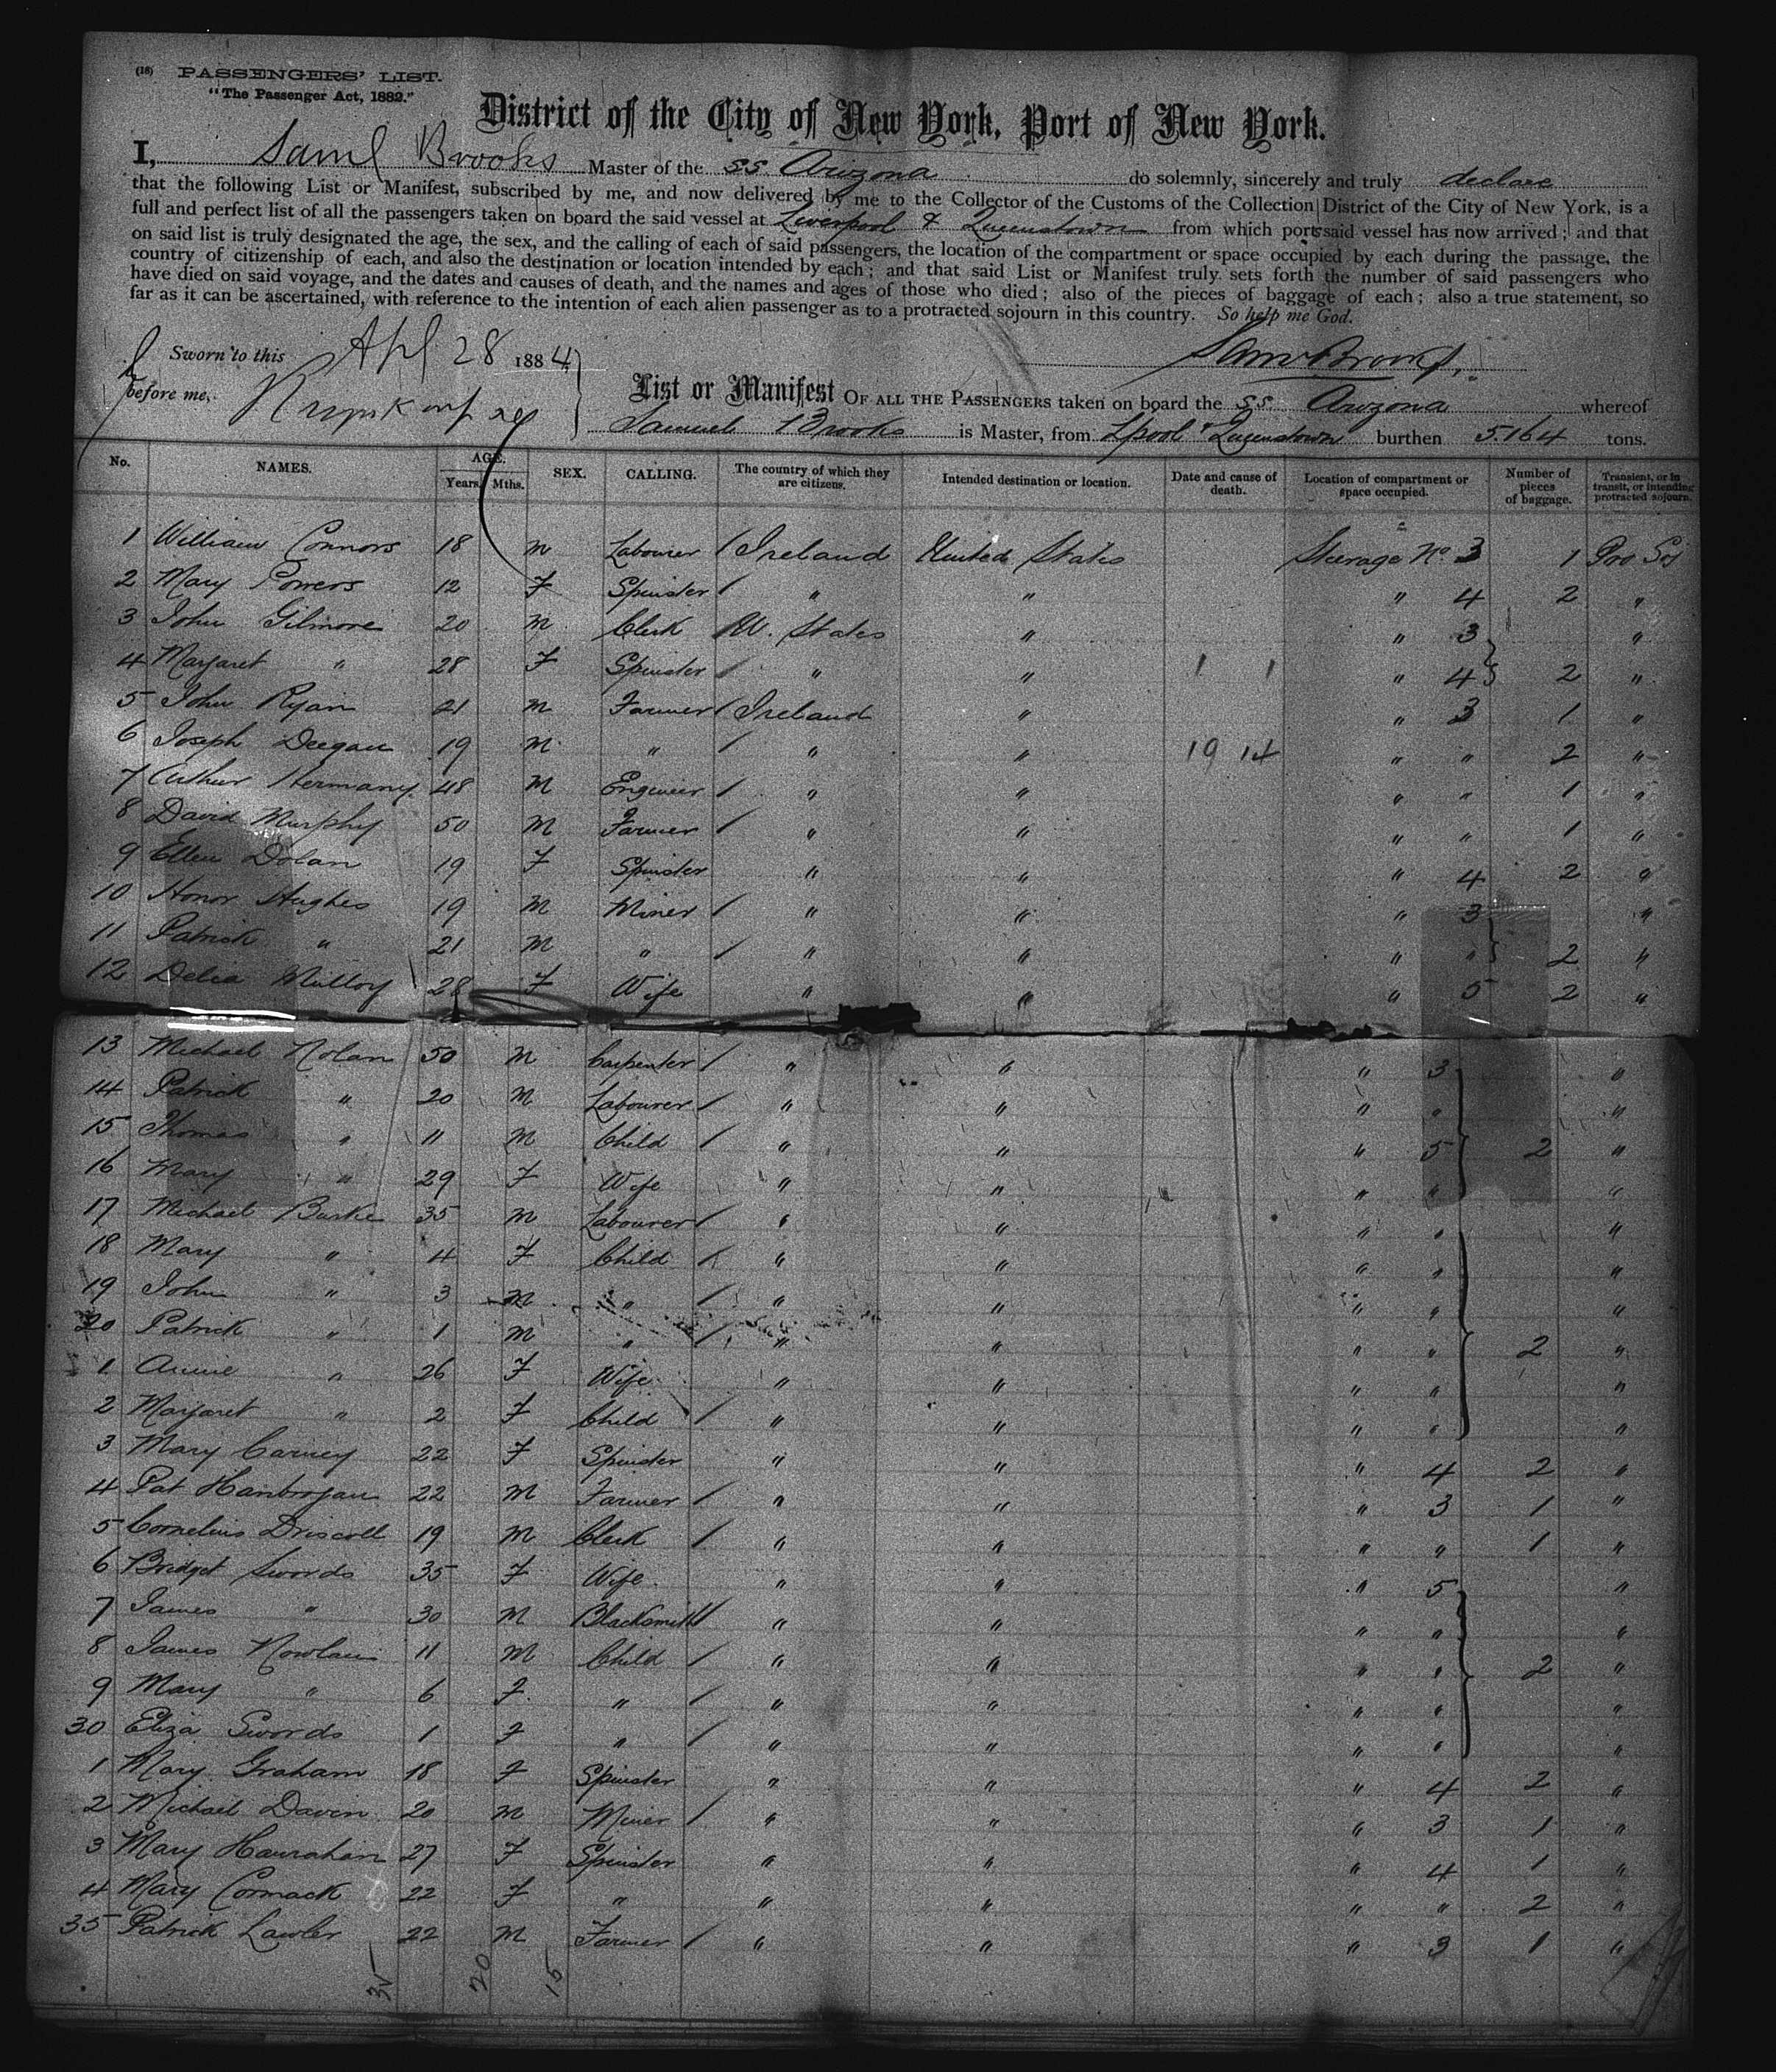 (16) PASSENGERS' LIST.
"The Passenger Act, 1882."
District of the City of New York, Port of New York.
I, Saml Brooks Master of the SS. Arizona do solemnly, sincerely and truly declare
that the following List or Manifest, subscribed by me, and now delivered by me to the Collector of the Customs of the Collection District of the City of New York, is a
full and perfect list of all the passengers taken on board the said vessel at Liverpool & Queenstown from which ports said vessel has now arrived; and that
on said list is truly designated the age, the sex, and the calling of each of said passengers, the location of the compartment or space occupied by each during the passage, the
country of citizenship of each, and also the destination or location intended by each; and that said List or Manifest truly sets forth the number of said passengers who
have died on said voyage, and the dates and causes of death, and the names and ages of those who died; also of the pieces of baggage of each; also a true statement, so
far as it can be ascertained, with reference to the intention of each alien passenger as to a protracted sojourn in this country. So help me God.
Sworn to this Apl 28 1884 Saml Brooks.
before me,
List or Manifest OF ALL THE PASSENGERS taken on board the SS. Arizona whereof
Samuel Brooks is Master, from Lpool & Queenstown burthen 5.164 tons.
No. NAMES. AGE. Years. Mths. SEX. CALLING. The country of which they are citizens. Intended destination or location. Date and cause of death. Location of compartment or space occupied. Number of pieces of baggage. Transient, or in transit, or intending protracted sojourn.
1 William Connors 18 M Labourer / Ireland United States Steerage No. 3 1 Pro Soj
2 Mary Powers 12 F Spinster / " " " 4 2 "
3 John Gilmore 20 M Clerk U. States " " 3 "
4 Margaret " 28 F Spinster / " " 1 1 " 4 2 "
5 John Ryan 21 M Farmer / Ireland " " 3 1 "
6 Joseph Deegan 19 M " / " " 19 14 " " 2 "
7 Arthur Hermany 48 M Engineer / " " " " 1 "
8 David Murphy 50 M Farmer / " " " " 1 "
9 Ellen Dolan 19 F Spinster " " " 4 2 "
10 Honor Hughes 19 M Miner / " " " 3 "
11 Patrick " 21 M " / " " " " 2 "
12 Delia Mulloy 28 F Wife " " " 5 2 "
13 Michael Nolan 50 M Carpenter / " " " 3 "
14 Patrick " 20 M Labourer / " " " " "
15 Thomas " 11 M Child / " " " 5 2 "
16 Mary " 29 F Wife " " " " "
17 Michael Burke 35 M Labourer / " " " " "
18 Mary " 4 F Child / " " " " "
19 John " 3 M " / " " " " "
20 Patrick " 1 M " / " " " " 2 "
1 Annie " 26 F Wife " " " " "
2 Margaret " 2 F Child / " " " " "
3 Mary Carney 22 F Spinster " " " 4 2 "
4 Pat 22 M Farmer / " " " 3 1 "
5 Cornelius Driscoll 19 M Clerk / " " " " 1 "
6 Bridget Swords 35 F Wife " " " 5 "
7 James " 30 M Blacksmith / " " " " "
8 James Nowlan 11 M Child / " " " " 2 "
9 Mary " 6 F " / " " " " "
30 Eliza Swords 1 F " / " " " " "
1 Mary Graham 18 F Spinster " " " 4 2 "
2 Michael Davin 20 M Miner / " " " 3 1 "
3 Mary Hanrahan 27 F Spinster " " " 4 1 "
4 Mary Cormack 22 F " " " " " 2 "
35 Patrick Lawler 22 M Farmer / " " " 3 1 "
35 20 15